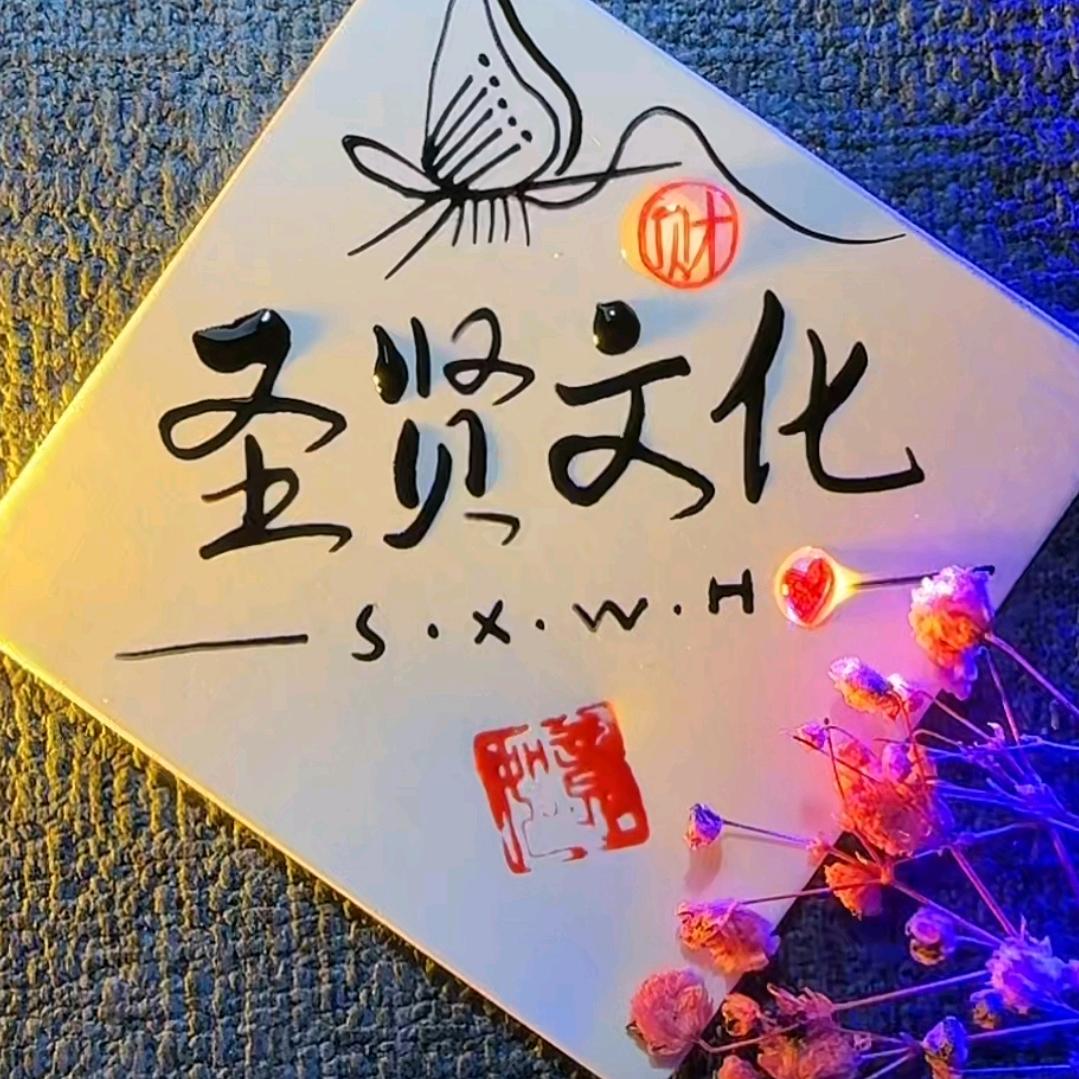 财
圣贤文化
S·X·W·H